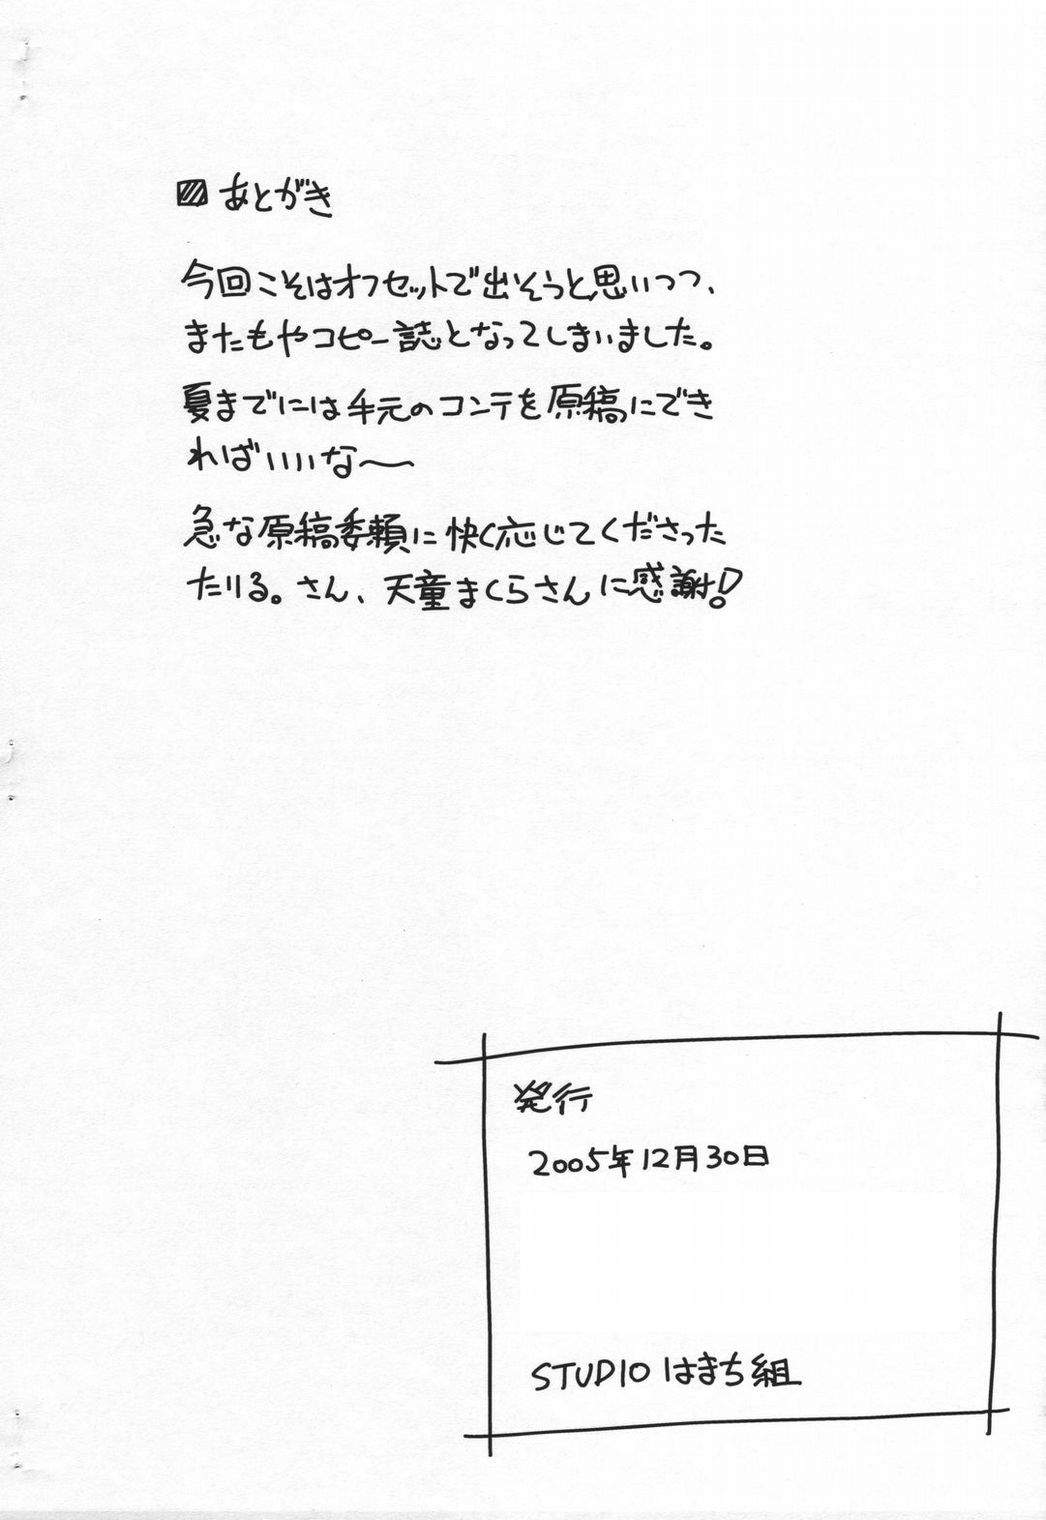 あとがき
今回こそはオフセットで出そうと思いつつ、
またもやコピー誌となってしまいました。
夏までには手元のコンテを原稿にでき
ればいいな〜
急な原稿委頼に快く応じてくださった
たりる。さん、天童まくらさんに感謝!
発行
2005年12月30日
STUDIOはまち組